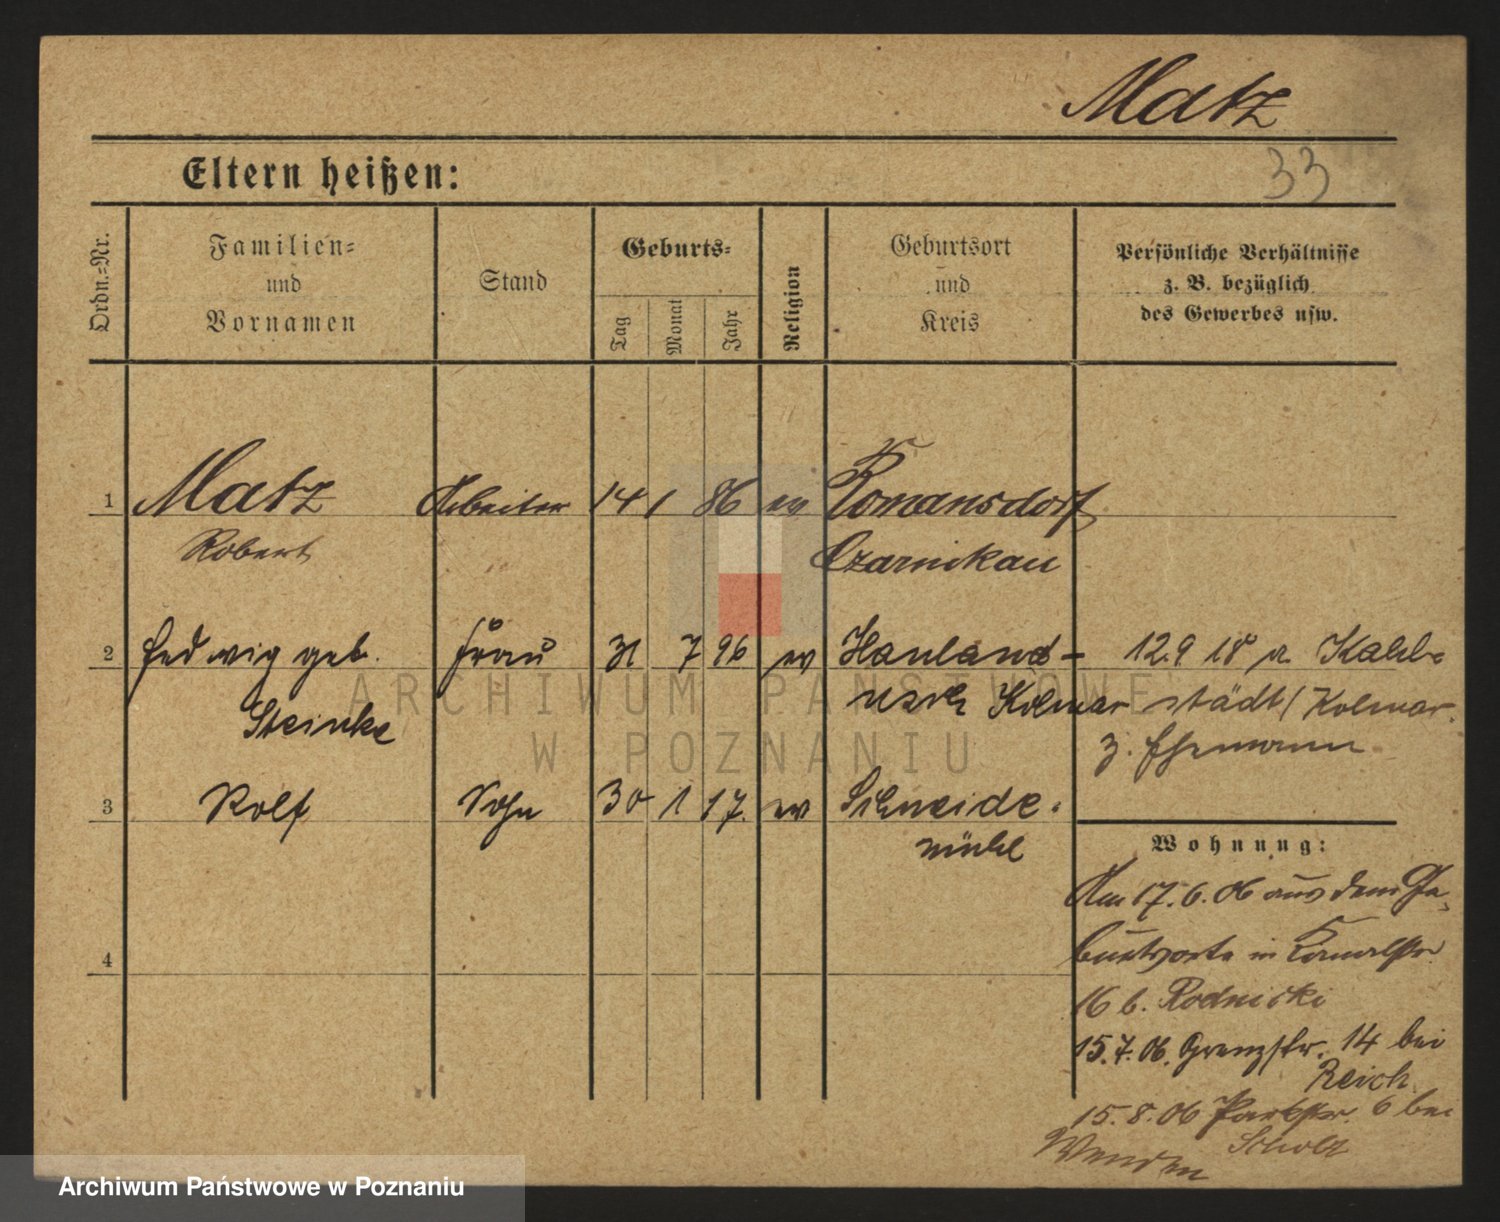 Matz
33
Eltern heißen:
Ordn.=Nr.
Familien=
und
Vornamen
Stand
Geburts=
Tag
Monat
Jahr
Religion
Geburtsort
und
Kreis
Persönliche Verhältnisse
z. B. bezüglich
des Gewerbes usw.
1 Matz Arbeiter 14 1 86 ev Romansdorf
Robert Czarnikau
2 Hedwig geb. Frau 31 7 96 ev Hauland - 12.9 18 a
Steinke Kolmar städt/Kolmar.
z. Ehemann
3 Rolf Sohn 30 1 17. ev Schneide=
mühl
Wohnung:
Am 17.6.06 aus dem Ge=
burtsorte in
16 b. Rodnicki
15.7.06. Grenzstr. 14 bei
Reich
15.8.06 Parkstr. 6 bei
Scholz
Wenden
4
ARCHIWUM PAŃSTWOWE
W POZNANIU
Archiwum Państwowe w Poznaniu